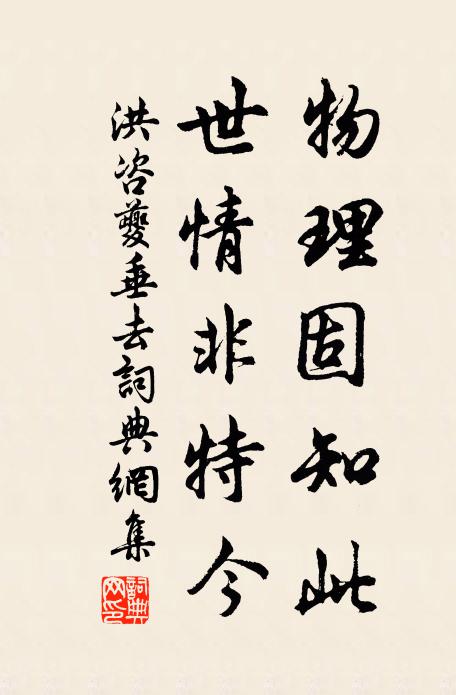 物理固知此
世情非特今
洪咨夔垂去詞典網集
詞典網印